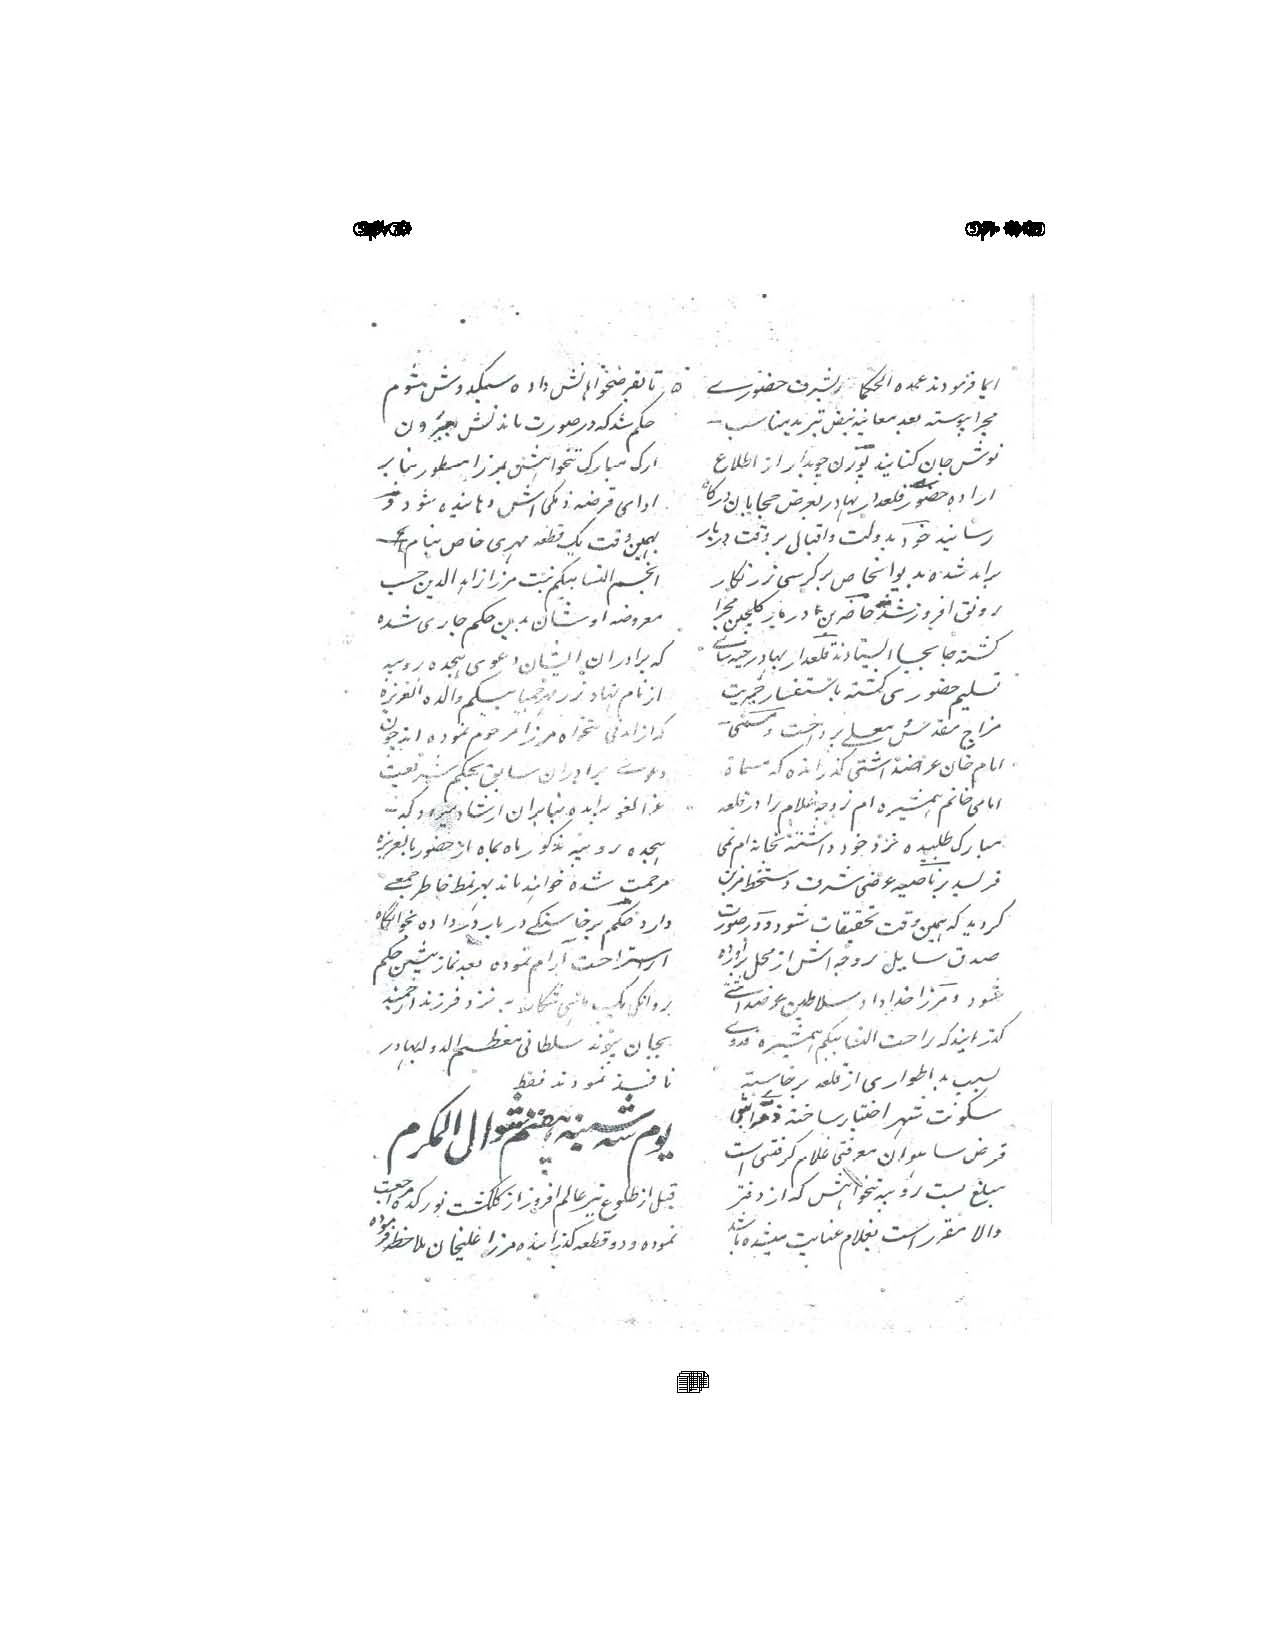 ایما فرمودند عمده الحکما بشرف حضوری
مجرا پیوسته بعد معاینه نبض تبرید مناسب
نوش جان کنانیدند پورن چوبدار از اطلاع
اراده حضور قلعدار بهادر بعرض حجابان درگاه
رسانید خود بدولت و اقبال بر وقت دربار
برامد شده بدیوانخاص بر کرسی زرنگار
رونق افروز شد حاضرین دربار مجرا
گشته جابجا ایستادند قلعدار بهادر
تسلیم حضوری گشته باستفسار خیریت
مزاج مقدس معلی پرداخت و
امام خان عرضداشتی گذرانده که مسماة
امامی خانم همشیره ام زوجه غلام را در قلعه
مبارک طلبیده نزد خود داشته بخانه ام نمی
فرستد بر ناصیه عرضی شرف دستخط مزین
گردید که همین وقت تحقیقات شود و در صورت
صدق سایل زوجه اش از محل برآورده
شود و مرزا خداداد سلاطین عرضداشتی
گذرانید که راحت النسا بیگم همشیره فدوی
بسبب بد اطواری از قلعه برخاسته
سکونت شهر اختیار ساخته
قرض ساهوان معرفتی غلام گرفتنی است
مبلغ بست روپیه تنخواهش که از دفتر
والا مقرر است بغلام عنایت میشده باشد
تا بقرضخواهانش داده سبکدوش میشوم
حکم شد که در صورت ماندنش بیرون
ارک مبارک تنخواهش بمرزا مسطور بنا بر
ادای قرضه ذمگی اش دهانیده شود و
بهمین وقت یک قطعه مهری خاص بنام
انجم النسا بیگم بنت مرزا زاهد الدین حسب
معروضه اوشان بدین حکم جاری شده
که برادران ایشان دعوی هیجده روپیه
از نام نهاد بیگم والده العزیزه
که از امدنی تنخواه مرزا مرحوم نموده اند چون
دعوی برادران سابق بحکم شریعت
غرا لغو برامده بنابران ارشاد میرود که
هیجده روپیه مذکور ماه بماه از حضور بالعزیزه
مرحمت شده خواهند ماند بهر نمط خاطر جمعی
دارد حکم برخاستگی دربار داده بخوابگاه
استراحت آرام نموده بعد نماز پیشین حکم
روانگی یک به نزد فرزند ارجمند
بجان پیوند سلطانی معظم الدوله بهادر
نافذ نمودند فقط
یوم سه شنبه هفتم شوال المکرم
قبل از طلوع نیر عالم افروز از گلگشت نورکده مراجعت
نموده و دو قطعه گذرانیده مرزا علیخان ملاحظه فرموده